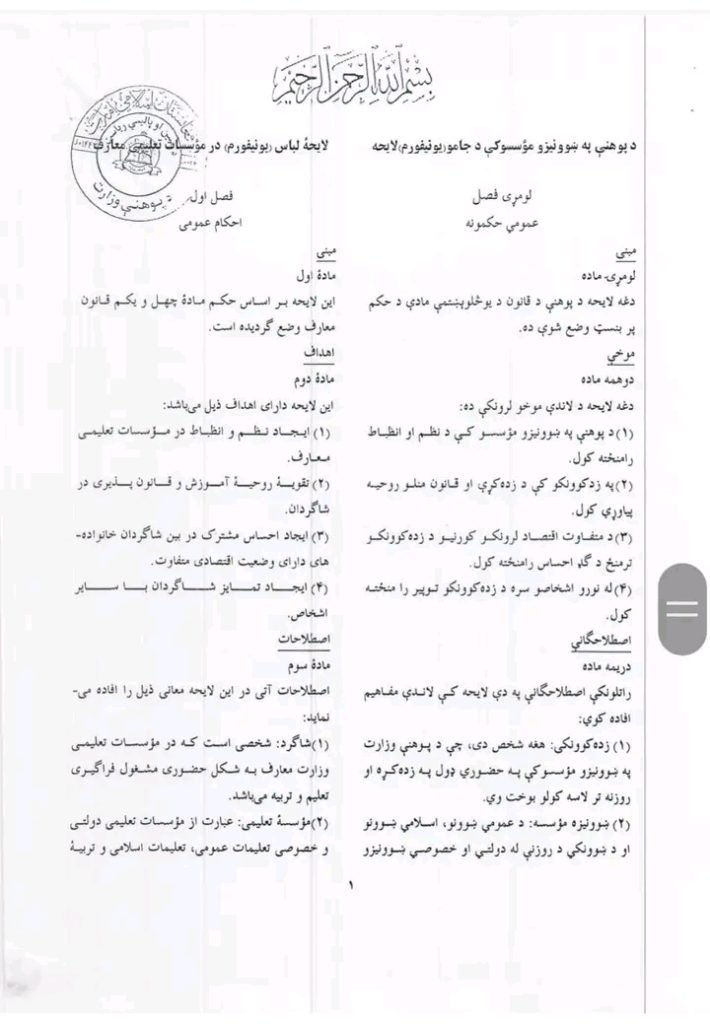 بسم الله الرحمن الرحيم
د پوهنې په ښوونیزو مؤسسوکې د جامو(یونیفورم)لایحه
لومړی فصل
عمومي حکمونه
مبنی
لومړۍ ماده
دغه لایحه د پوهنې د قانون د یوڅلوېښتمې مادې د حکم
پر بنسټ وضع شوې ده.
موخې
دوهمه ماده
دغه لایحه د لاندې موخو لرونکې ده:
(۱) د پوهنې په ښوونیزو مؤسسو کې د نظم او انظباط
رامنځته کول.
(۲) په زدکوونکو کې د زده‌کړې او قانون منلو روحیه
پیاوړې کول.
(۳) د متفاوت اقتصاد لرونکو کورنیو د زده‌کوونکو
ترمنځ د ګډ احساس رامنځته کول.
(۴) له نورو اشخاصو سره د زده‌کوونکو توپیر را منځته
کول.
اصطلاحګانې
دریمه ماده
راتلونکې اصطلاحګانې په دې لایحه کې لاندې مفاهیم
افاده کوي:
(۱) زده‌کوونکی: هغه شخص دی، چې د پوهنې وزارت
په ښوونیزو مؤسسوکې په حضوري ډول په زده‌کړه او
روزنه تر لاسه کولو بوخت وي.
(۲) ښوونیزه مؤسسه: د عمومي ښوونو، اسلامي ښوونو
او د ښوونکي د روزنې له دولتي او خصوصي ښوونیزو
لایحهٔ لباس (یونیفورم) در مؤسسات تعلیمی معارف
فصل اول
احکام عمومی
مبنی
مادهٔ اول
این لایحه بر اساس حکم مادهٔ چهل و یکم قانون
معارف وضع گردیده است.
اهداف
مادهٔ دوم
این لایحه دارای اهداف ذیل می‌باشد:
(۱) ایجاد نظم و انظباط در مؤسسات تعلیمی
معارف.
(۲) تقویهٔ روحیهٔ آموزش و قانون پذیری در
شاگردان.
(۳) ایجاد احساس مشترک در بین شاگردان خانواده-
های دارای وضعیت اقتصادی متفاوت.
(۴) ایجاد تمایز شاگردان با سایر
اشخاص.
اصطلاحات
مادهٔ سوم
اصطلاحات آتی در این لایحه معانی ذیل را افاده می-
نماید:
(۱) شاگرد: شخصی است که در مؤسسات تعلیمی
وزارت معارف به شکل حضوری مشغول فراگیری
تعلیم و تربیه می‌باشد.
(۲) مؤسسهٔ تعلیمی: عبارت از مؤسسات تعلیمی دولتی
و خصوصی تعلیمات عمومی، تعلیمات اسلامی و تربیهٔ
د پوهنې وزارت
۱